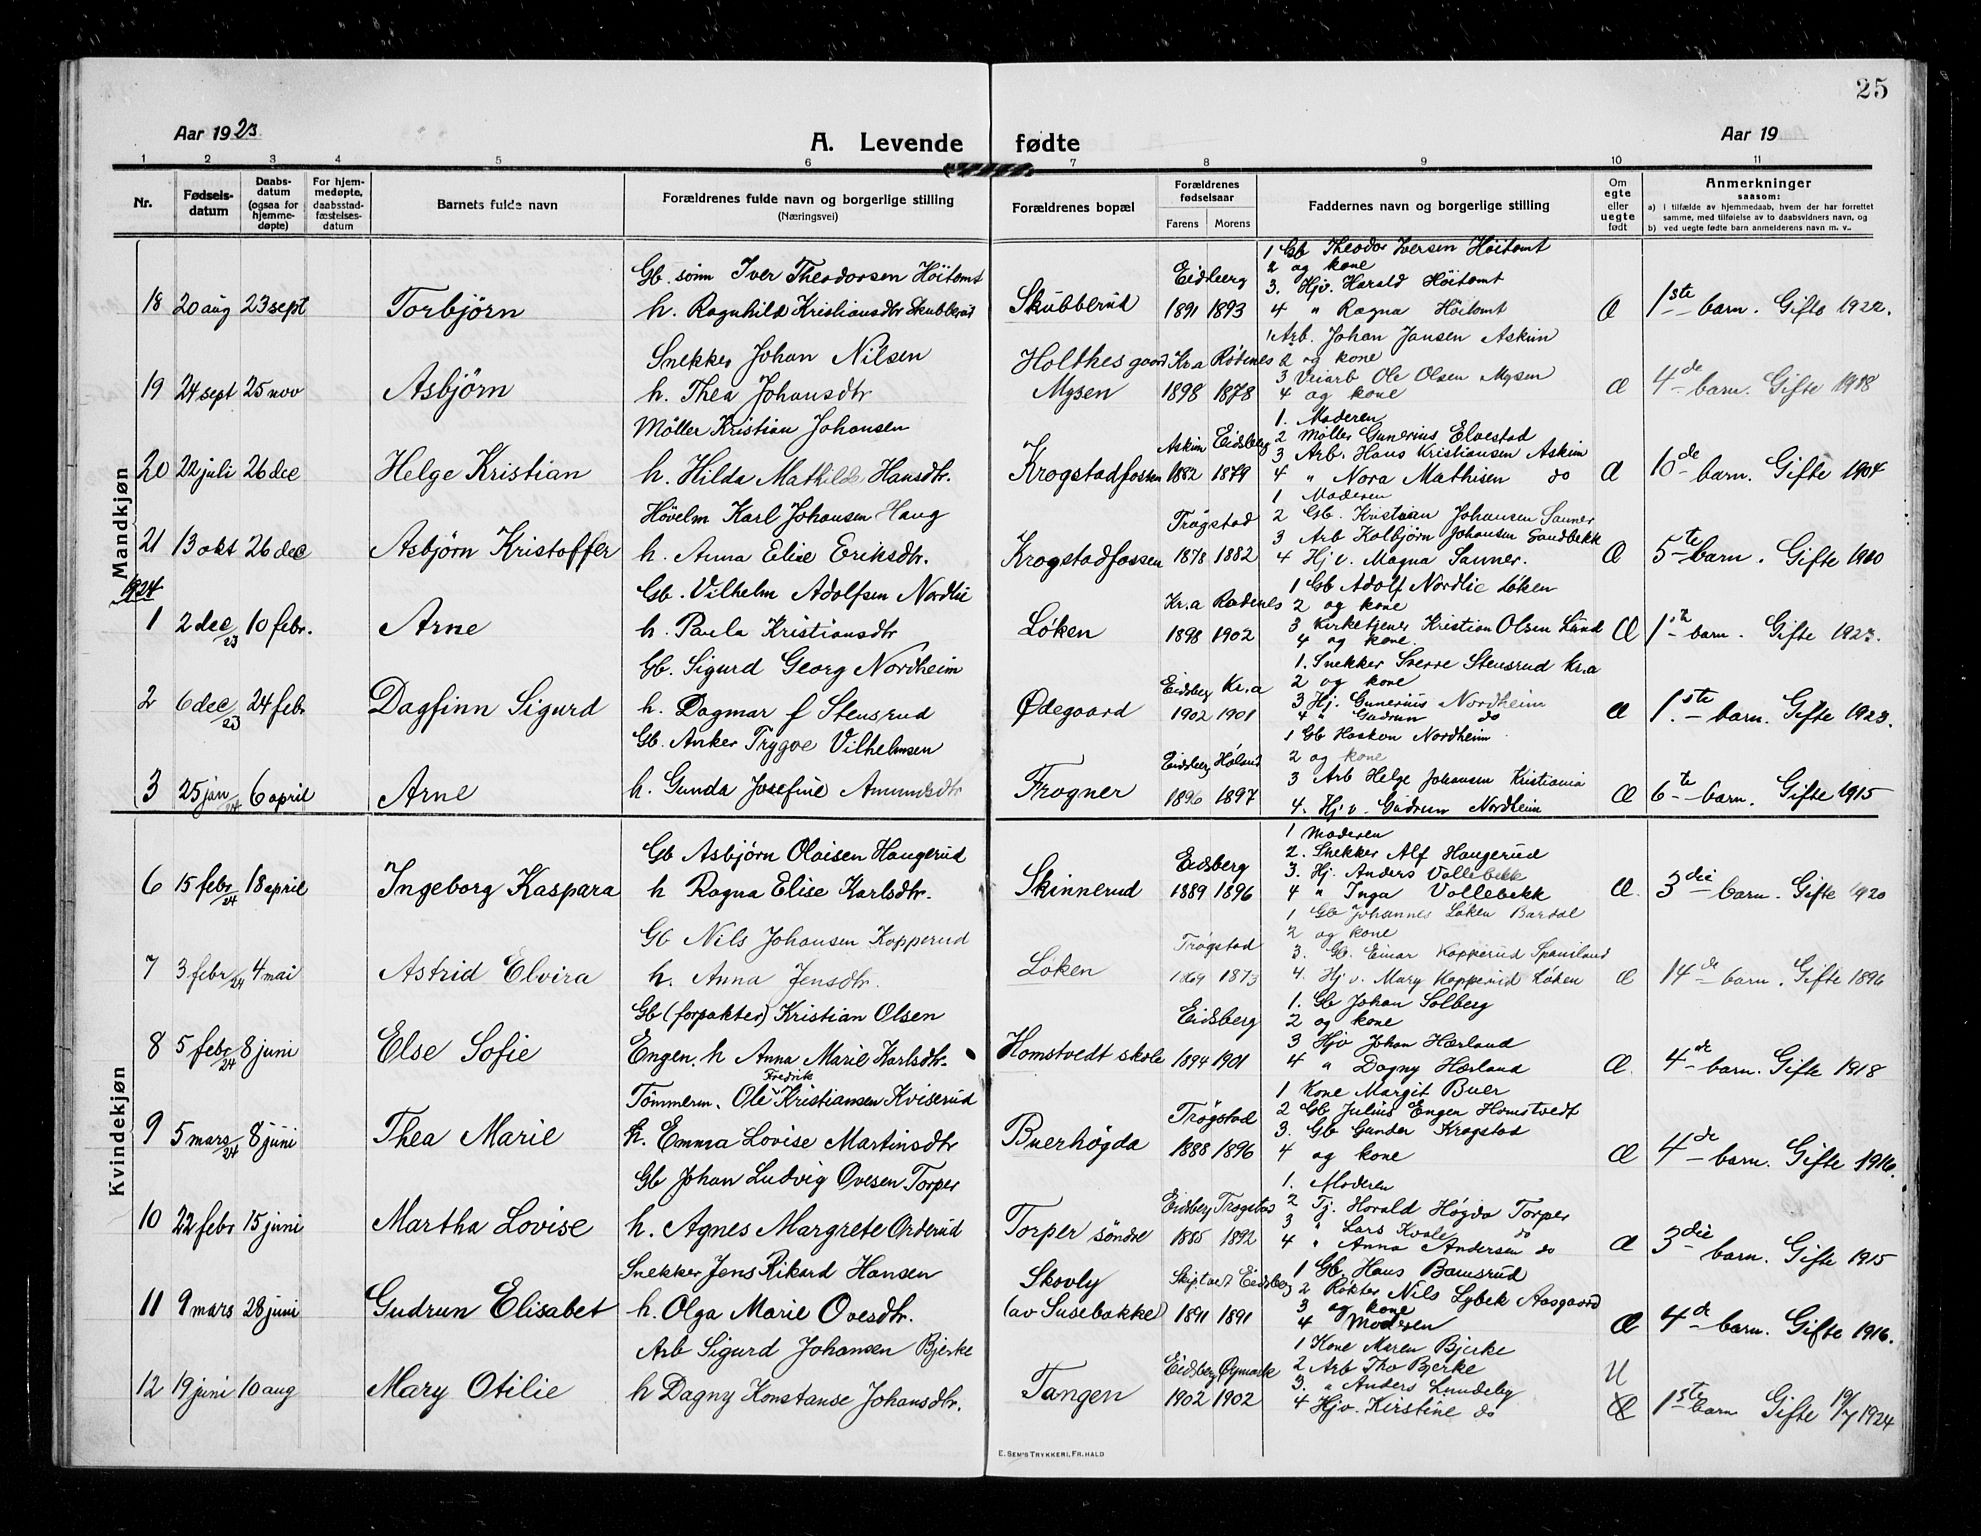 25
Aar 1923
A. Levende fødte
Aar 19
1 2 3 4 5 6 7 8 9 10 11
Nr.
Fødsels-
datum
Daabs-
datum
(ogsaa for
hjemme-
døpte)
For hjem-
medøpte,
daabsstad-
fæstelses-
datum
Barnets fulde navn
Forældrenes fulde navn og borgerlige stilling
(Næringsvei)
Forældrenes bopæl
Forældrenes
fødselsaar
Farens Morens
Faddernes navn og borgerlige stilling
Om
egte
eller
uegte
født
Anmerkninger
saasom:
a) i tilfælde av hjemmedaab, hvem der har forrettet
samme, med tilføielse av to daabsvidners navn, og
b) ved uegte fødte barn anmelderens navn m. v..
Mandkjøn
18 20 aug 23 sept Torbjörn
Gb. sönn Iver Theodorsen Höitomt
h. Ragnhild Kristiansdtr Skubberud
Skubberud
Eidsberg
1891 1893
1 Gb Theodor Iversen Höitomt
2 og kone
3. Hjv. Harald Höitomt
4 " Ragna Höitomt
Æ
1ste barn. Gifte 1922.
19 24 sept 25 nov Asbjörn
Snekker Johan Nilsen
h. Thea Johansdtr
Holthes gaard
Mysen
Kr.a Rödenes
1898 1878
1 Arb. Johan Jansen Askim
2 og kone
3 Veiarb Ole Olsen Mysen
4 og kone
Æ
4de barn. Gifte 1918
20 22 juli 26 dec Helge Kristian
Möller Kristian Johansen
h. Hilda Mathilde Hansdtr.
Krogstadfossen
Askim Eidsberg
1882 1879
1. Moderen
2 Møller Gunerius Elvestad
3 Arb. Hans Kristiansen Askim
4 " Nora Mathisen do
Æ
10de barn. Gifte 1904
21 13 okt 26 dec Asbjörn Kristoffer
Hövelm Karl Johansen Haug
h. Anna Elise Eriksdtr.
Krogstadfossen
Trögstad
1878 1882
1 Moderen
2 Gb. Kristian Johansen Sanner
3 Arb Kolbjörn Johansen Sandbekk
4 Hj v. Magna Sanner.
Æ
5te barn. Gifte 1910
1924
1 2 dec/23 10 febr. Arne
Gb. Vilhelm Adolfsen Nordlie
h. Paula Kristiansdtr
Löken
Kr.a Rødenes
1898 1902
1 Gb Adolf Nordlie Löken
2 og kone
3 Kirketjener Kristian Olsen Lund
4 og kone
Æ
1ste barn. Gifte 1923.
2 6 dec/23 24 febr Dagfinn Sigurd
Gb. Sigurd Georg Nordheim
h. Dagmar f Stensrud
Ødegaard
Eidsberg Kr.a
1902 1901
1. Snekker Sverre Stensrud Kr.a
2 og kone
3 Hj. Gunerius Nordheim
4 " Gudrun do
Æ
1ste barn. Gifte 1923.
3 25 jan/24 6 april Arne
Gb. Anker Trygve Vilhelmsen
h. Gunda Josefine Amundsdtr
Frogner
Eidsberg Höland
1896 1897
1 Gb Haakon Nordheim
2 og kone
3 Arb Helge Johansen Kristiania
4. Hj v. Gudrun Nordheim
Æ
6te barn. Gifte 1915
Kvindekjøn
6 15 febr/24 18 april Ingeborg Kaspara
Gb Asbjörn Olaisen Haugerud
h Ragna Elise Karlsdtr.
Skinnerud
Eidsberg
1889 1896
1 Moderen
2. Snekker Alf Haugerud
3. Hj. Anders Vollebekk
4 " Inga Vollebekk
Æ.
3die barn. Gifte 1920
7 3 febr/24 4 mai Astrid Elvira
Gb Nils Johansen Kopperud
h. Anna Jensdtr.
Löken
Trögstad
1869 1873
1 Gb Johannes Løken Bardal
2 og kone
3. Gb. Einar Kopperud
4. Hj v. Mary Kopperud Løken
Æ
14de barn. Gifte 1896
8 5 febr/24 8 juni Else Sofie
Gb (forpakter) Kristian Olsen
Engen. h Anna Marie Karlsdtr.
Homstvedt skole
Eidsberg
1894 1901
1. Gb Johan Solberg
2 og kone
3 Hjv Johan Hærland
4 " Dagny Hærland
Æ.
4de barn. Gifte 1918
9 5 mars/24 8 juni Thea Marie
Tömmerm. Ole Fredrik Kristiansen Kviserud
h. Emma Lovise Martinsdtr
Buerhögda
Trögstad
1888 1896
1 Kone Margit Buer
2 Gb Julius Engen Homstvedt
3. Gb Gunder Krogstad
4 og kone
Æ
4de barn. Gifte 1916.
10 22 febr 15 juni Martha Lovise
Gb Johan Ludvig Ovesen Torper
h. Agnes Margrete Onderud
Torper söndre
Eidsberg Trøgstad
1885 1892
1. Moderen
2 Tj. Harald Høgda Torper
3 " Lars Kvale do
4 " Anna Andersen do
Æ
3die barn. Gifte 1915
11 9 mars 28 juni Gudrun Elisabet
Snekker Jens Rikard Hansen
h. Olga Marie Ovesdtr.
Skovly
(av Susebakke)
Skiptvet Eidsberg
1891 1891
1 Gb Hans Bamsrud
2 Røkter Nils Lybek Aasgaard
3 og kone
4 Moderen
Æ
4de barn. Gifte 1916.
12 19 juni 10 aug Mary Otilie
Arb Sigurd Johansen Bjerke
h Dagny Konstanse Johansdtr.
Tangen
Eidsberg Øymark
1902 1902
1 Kone Maren Bjerke
2 Arb Tho Bjerke
3. " Anders Lundeby
4 Hjv. Kirstine do
U
Æ
1ste barn Gifte 19/7 1924
E. SEM'S TRYKKERI, FR.HALD